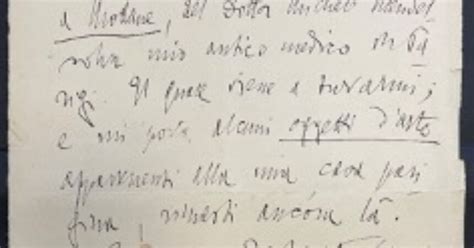 a Modane, del Dottor Michele
mio antico medico
Il quale viene a trovarmi;
e mi porta alcuni oggetti d'arte
appartenenti alla mia casa pari
gina, rimasti ancóra là.